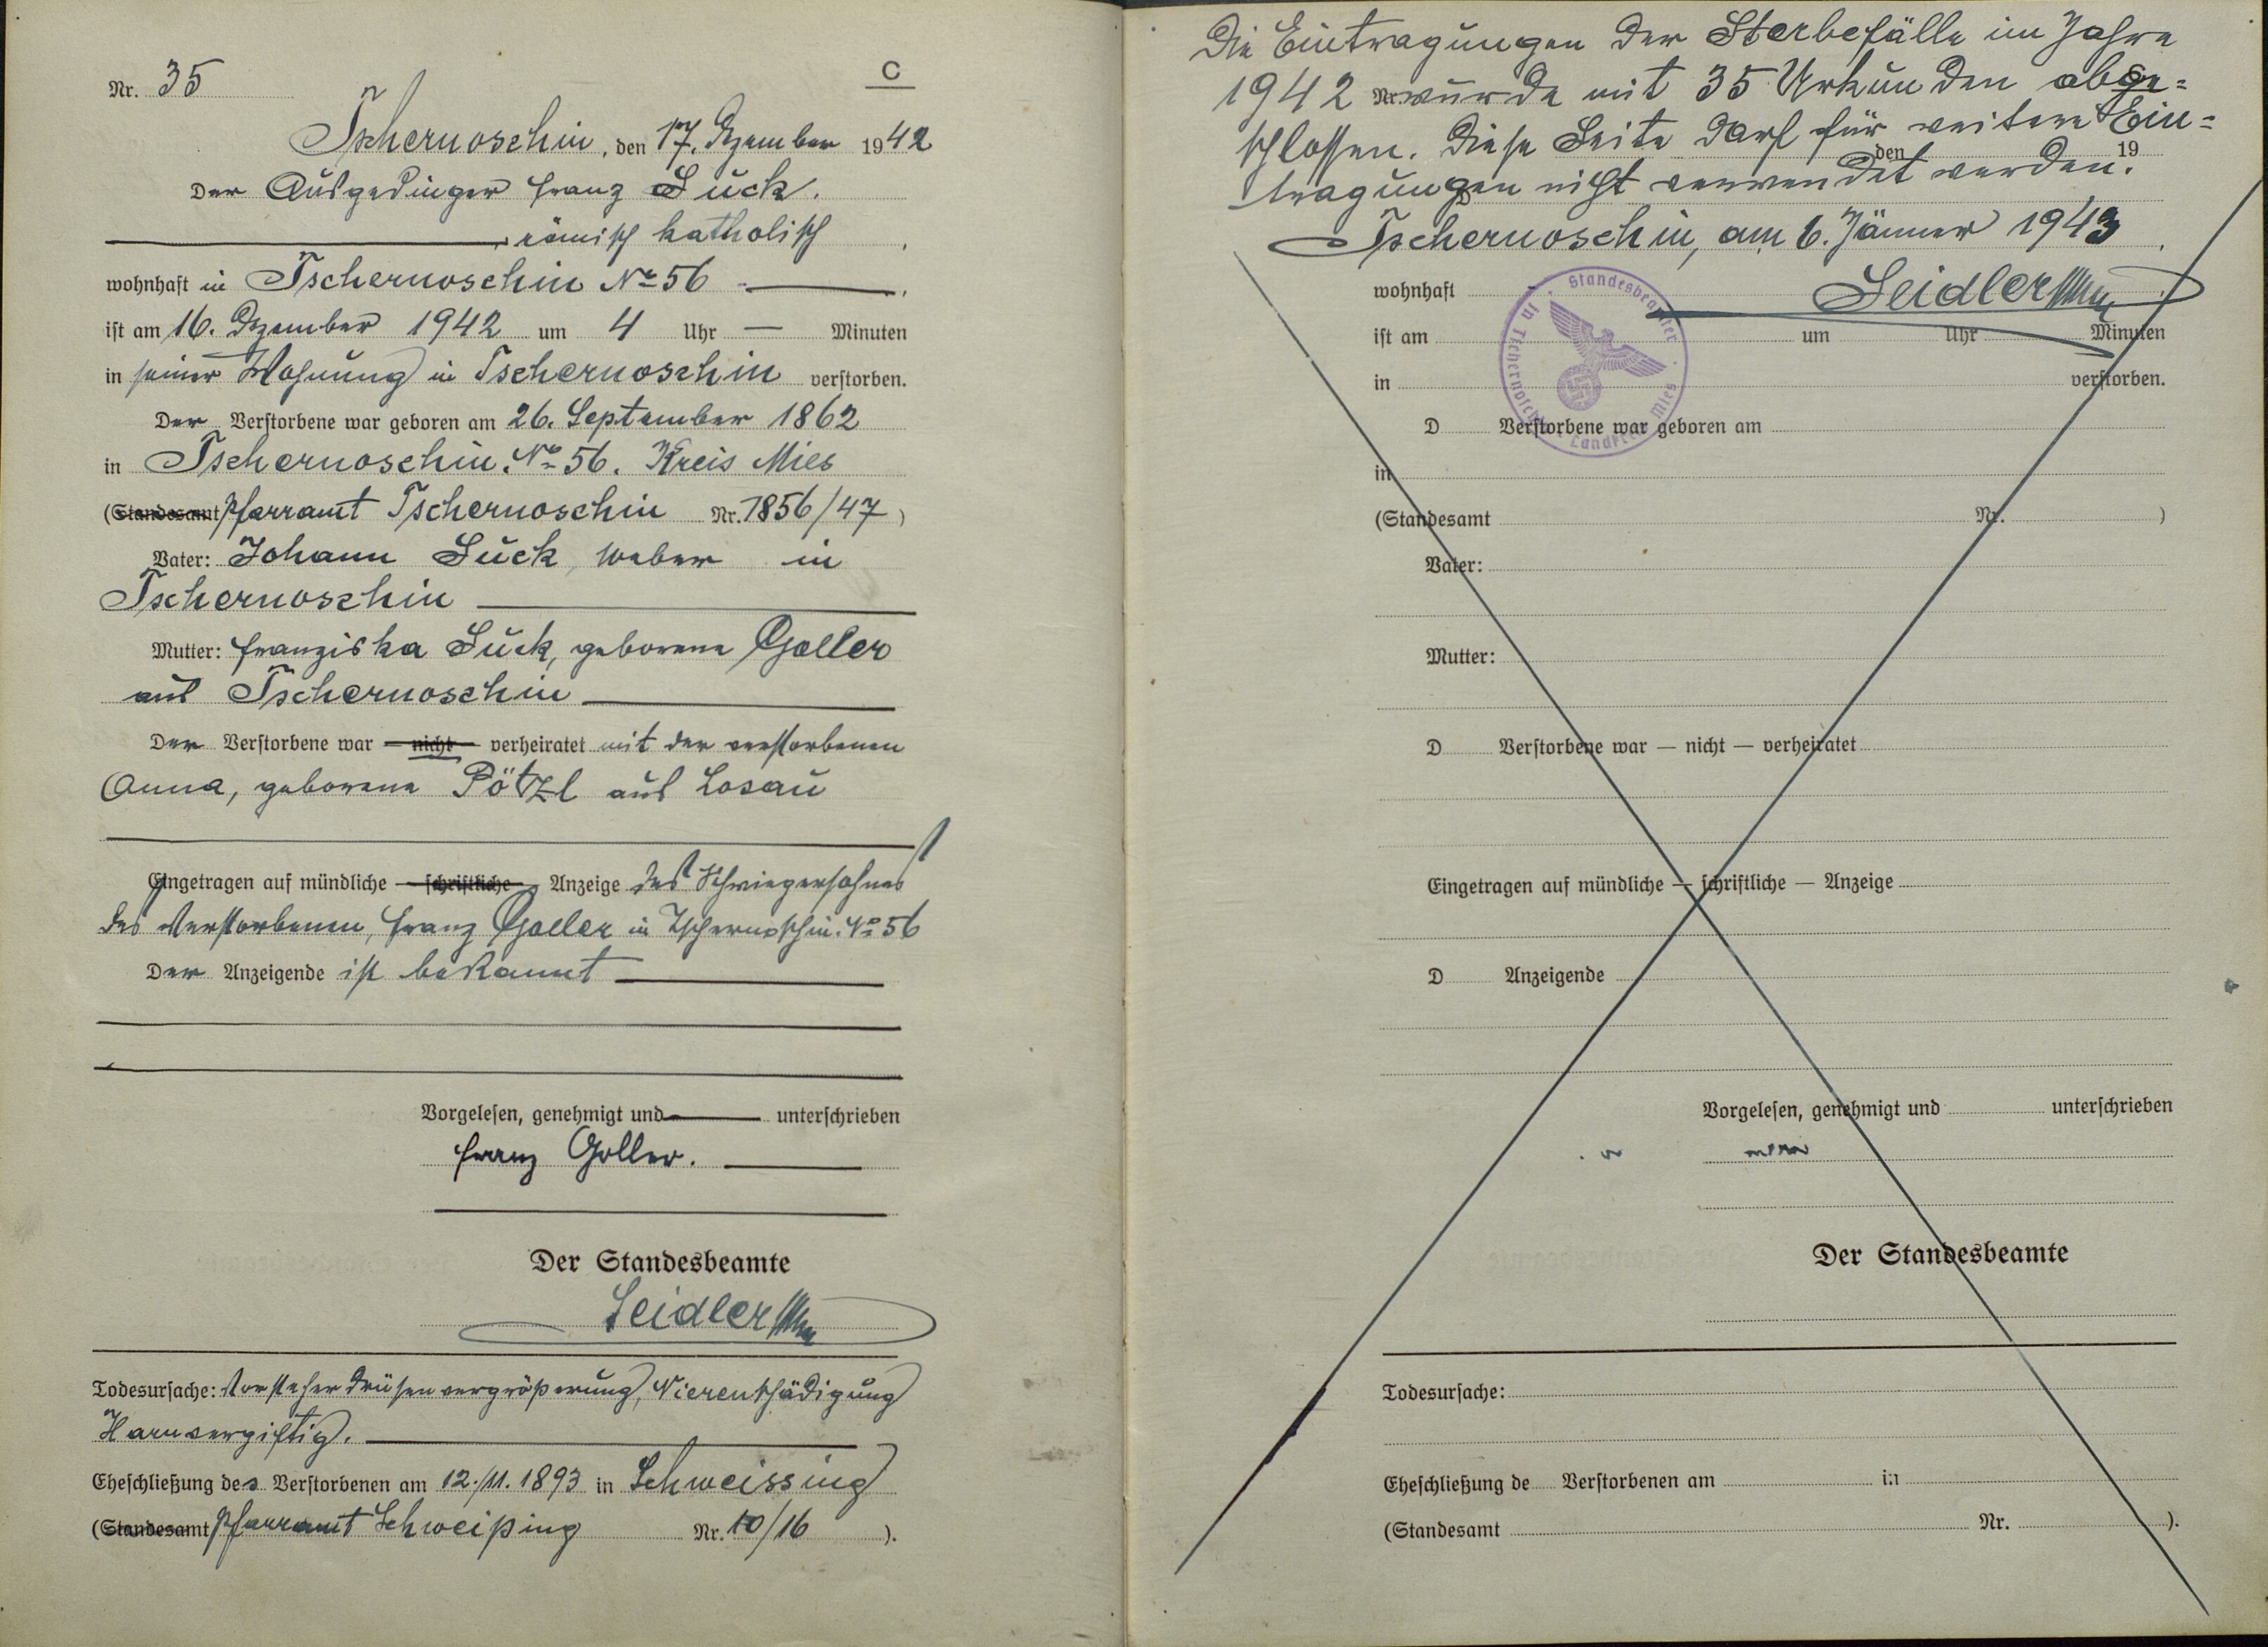 Nr. 35
C
Tschernoschin, den 17. Dezember 1942
Der Ausgedinger Franz Suck.
römisch katholisch
wohnhaft in Tschernoschin No 56 -
ist am 16. Dezember 1942 um 4 Uhr — Minuten
in seiner Wohnung in Tschernoschin verstorben.
Der Verstorbene war geboren am 26. September 1862
in Tschernoschin. No 56. Kreis Mies
(Standesamt Pfarramt Tschernoschin Nr. 1856/47)
Vater: Johann Suck, Weber in
Tschernoschin
Mutter: Franziska Suck, geborene Goller
aus Tschernoschin
Der Verstorbene war — nicht — verheiratet mit der verstorbenen
Anna, geborene Pötzl aus Losau
Eingetragen auf mündliche — schriftliche — Anzeige des Schwiegersohnes
des Verstorbenen, Franz Goller in Tschernoschin. No 56
Der Anzeigende ist bekannt
Vorgelesen, genehmigt und unterschrieben
Franz Goller.
Der Standesbeamte
Seidler
Todesursache: Vorsteherdrüsenvergrößerung, Nierenschädigung
Harnvergiftig.
Eheschließung des Verstorbenen am 12./11. 1893 in Schweissing
(Standesamt Pfarramt Schweißing Nr. 10/16 ).
Die Eintragungen der Sterbefälle im Jahre
1942 Nr. wurde mit 35 Urkunden abge=
schlossen. Diese Seite darf für weitere Ein=
den 19
tragungen nicht verwendet werden.
Tschernoschin, am 6. Jänner 1943
Seidler
Standesbeamter in Tschernoschin Landkreis Mies
wohnhaft
ist am um Uhr Minuten
in verstorben.
D Verstorbene war geboren am
in
(Standesamt Nr. )
Vater:
Mutter:
D Verstorbene war — nicht — verheiratet
Eingetragen auf mündliche — schriftliche — Anzeige
D Anzeigende
Vorgelesen, genehmigt und unterschrieben
Der Standesbeamte
Todesursache:
Eheschließung de Verstorbenen am in
(Standesamt Nr. ).